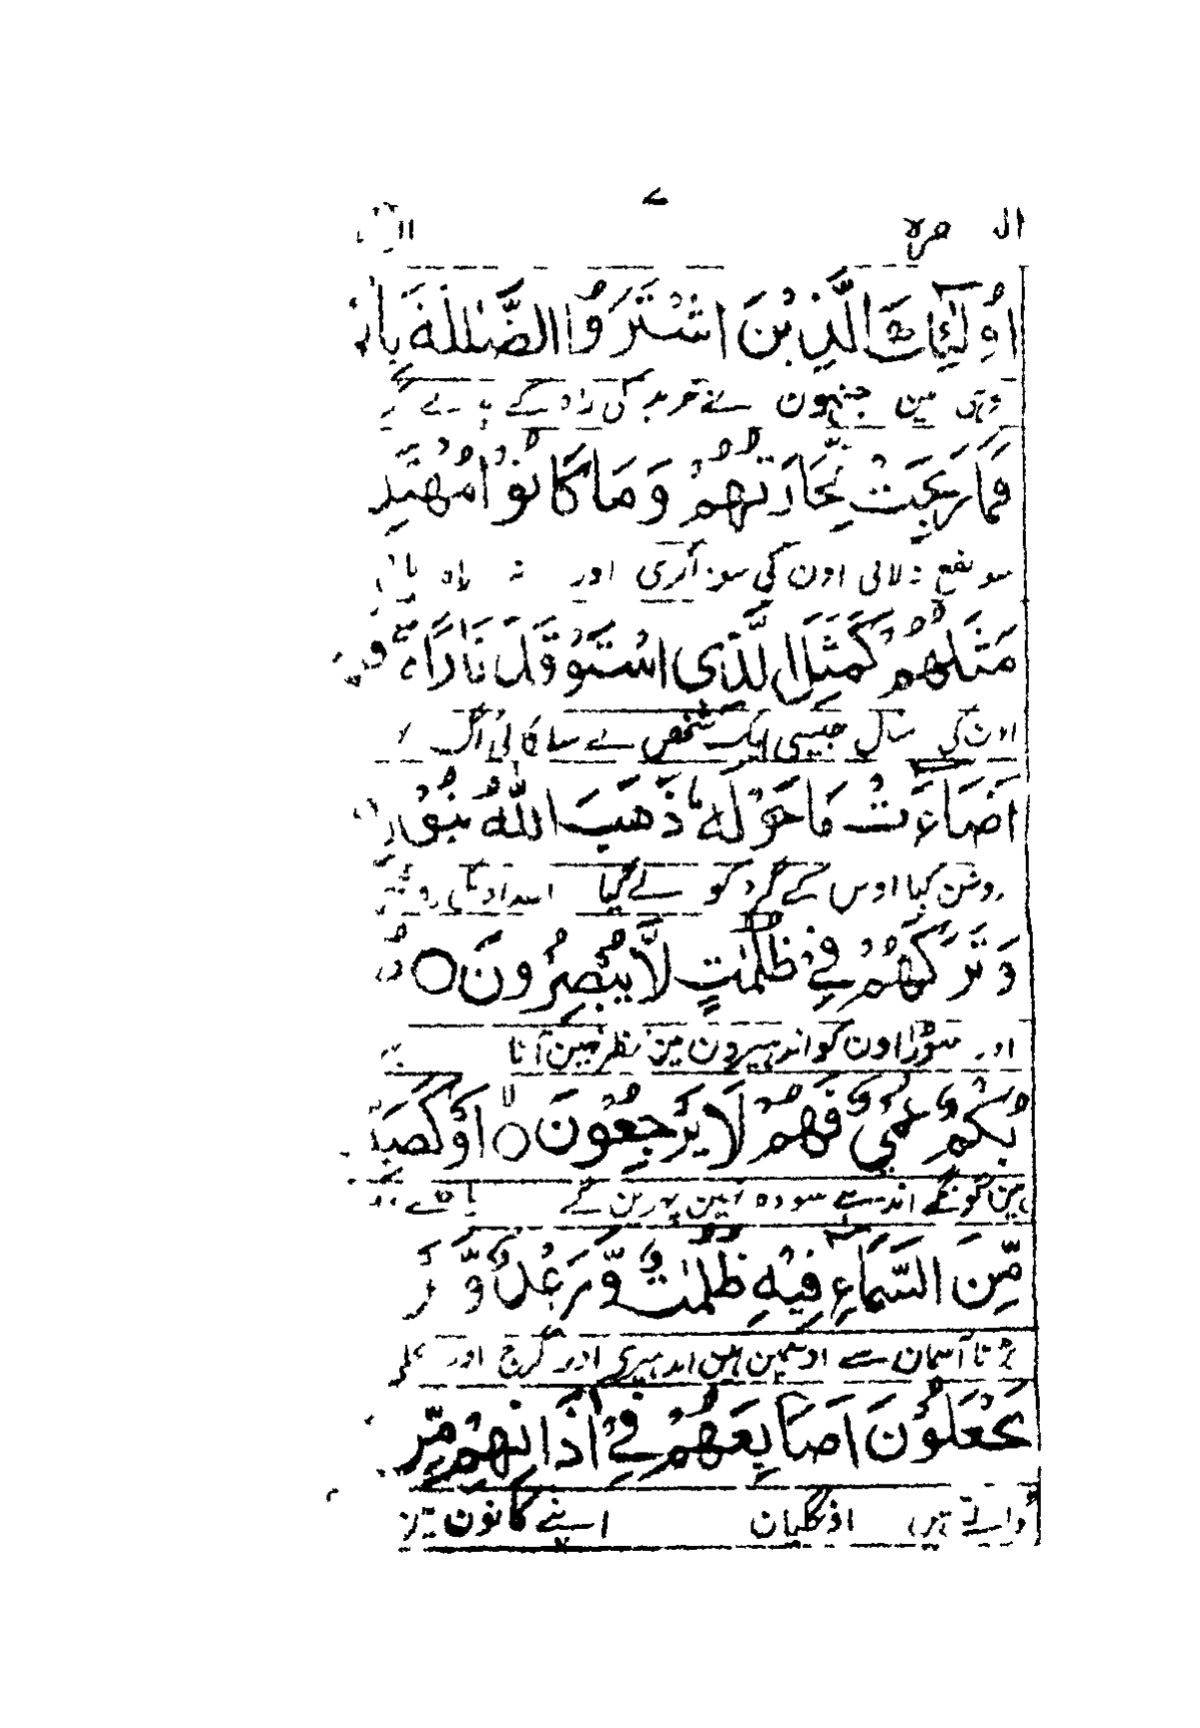 اُولٰٓئِكَ الَّذِيْنَ اشْتَرَوُا الضَّلٰلَةَ
وہی ہین جنہون نے خرید کی راہ کے
فَمَا رَبِحَتْ تِّجَارَتُهُمْ وَمَا كَانُوْا مُهْتَدِ
سو نفع نہ لائی اون کی سوداگری اور نہ راہ
مَثَلُهُمْ كَمَثَلِ الَّذِى اسْتَوْقَدَ نَارًا ۚ
اون کی مثال جیسی ایک شخص نے سلگائی آگ
اَضَآءَتْ مَا حَوْلَهٗ ذَهَبَ اللّٰهُ بِنُوْرِ
روشن کیا اوس کے گرد کو لے گیا
وَتَرَكَهُمْ فِيْ ظُلُمٰتٍ لَّا يُبْصِرُوْنَ ○
اور چھوڑا اون کو اندہیرون مین نظر نہین آتا
بُكْمٌ عُمْيٌ فَهُمْ لَا يَرْجِعُوْنَ ○ۙ اَوْ كَصَيِّ
ہین گونگے اندہے سو وہ نہین پھرین گے یا
مِّنَ السَّمَآءِ فِيْهِ ظُلُمٰتٌ وَّرَعْدٌ وَّ
پڑتا آسمان سے اوسمین ہین اندہیری اور گرج اور
يَجْعَلُوْنَ اَصَابِعَهُمْ فِيْٓ اٰذَانِهِمْ مِّنَ
ڈالتے ہین اونگلیان اپنے کانون مین